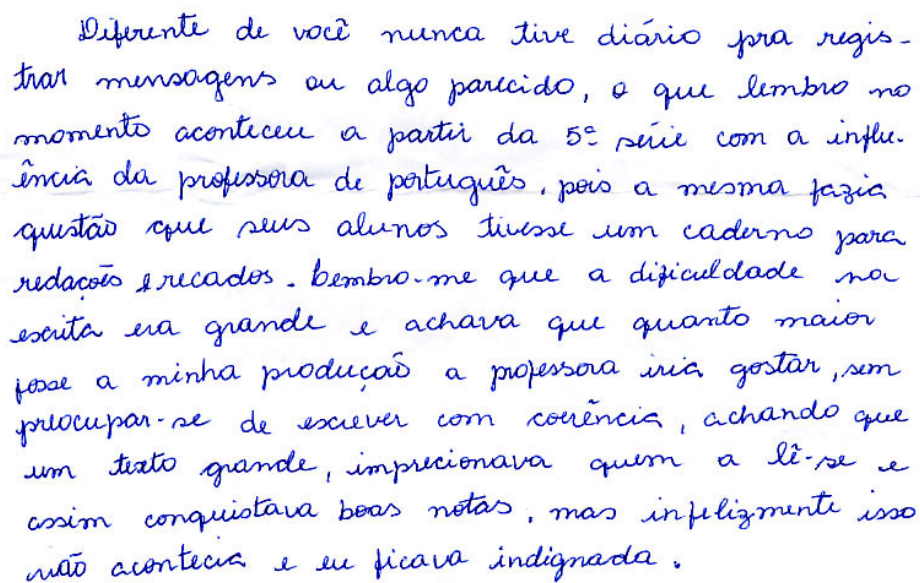 Diferente de você nunca tive diário pra regis-
trar mensagens ou algo parecido, o que lembro no
momento aconteceu a partir da 5ª série com a influ-
ência da professora de português, pois a mesma fazia
questão que seus alunos tivesse um caderno para
redações e recados. Lembro-me que a dificuldade na
escrita era grande e achava que quanto maior
fosse a minha produção a professora iria gostar, sem
preocupar-se de escrever com coerência, achando que
um texto grande, imprecionava quem a lê-se e
assim conquistava boas notas, mas infelizmente isso
não acontecia e eu ficava indignada.